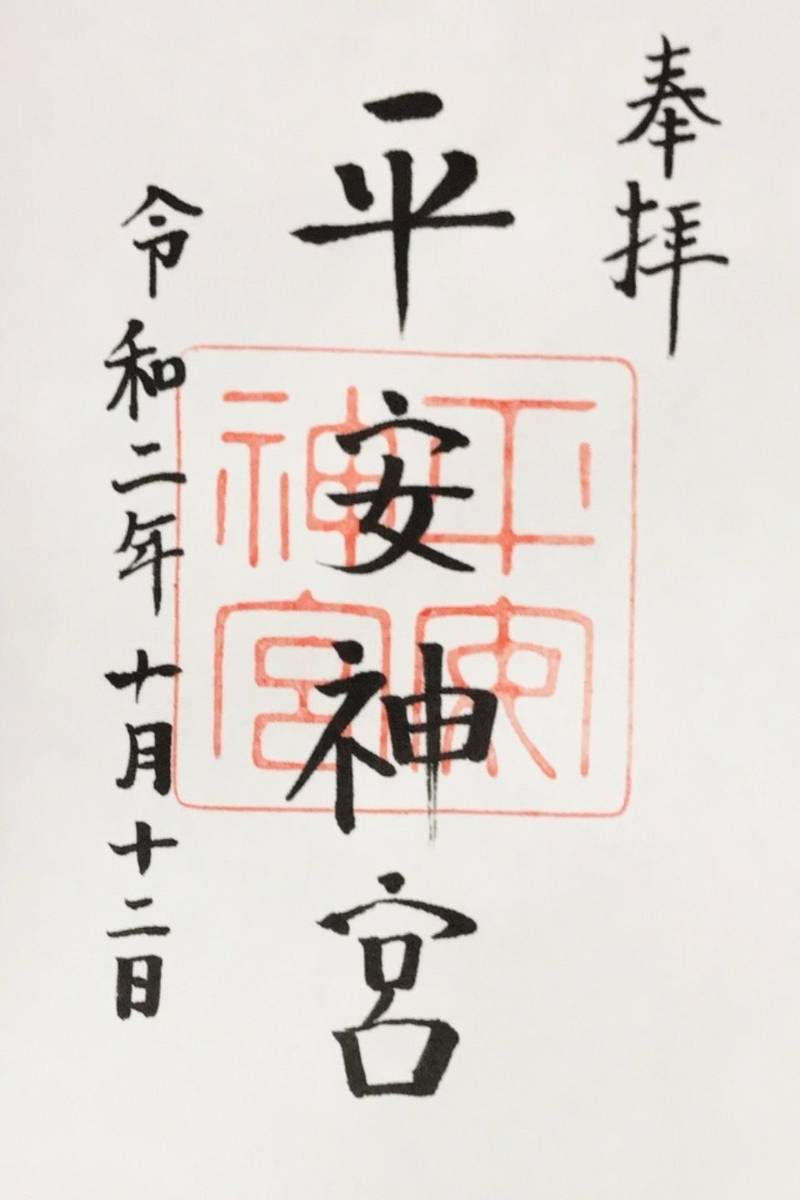 奉拝
平安神宮
平安神宮
令和二年十月十二日